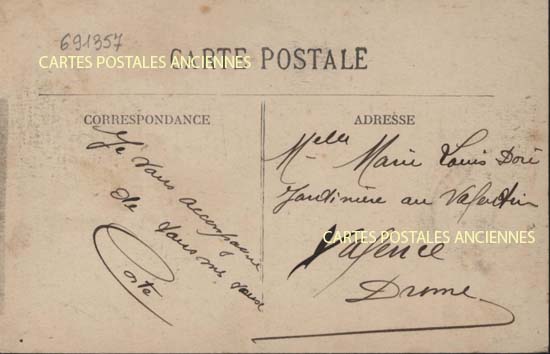 691357
CARTE POSTALE
CARTES POSTALES ANCIENNES
CORRESPONDANCE
Je vous accompagne
de
Costa
ADRESSE
Melle Marie Louis Doré
Jardinière au Valentin
CARTES POSTALES ANCIENNES
Valence
Drome